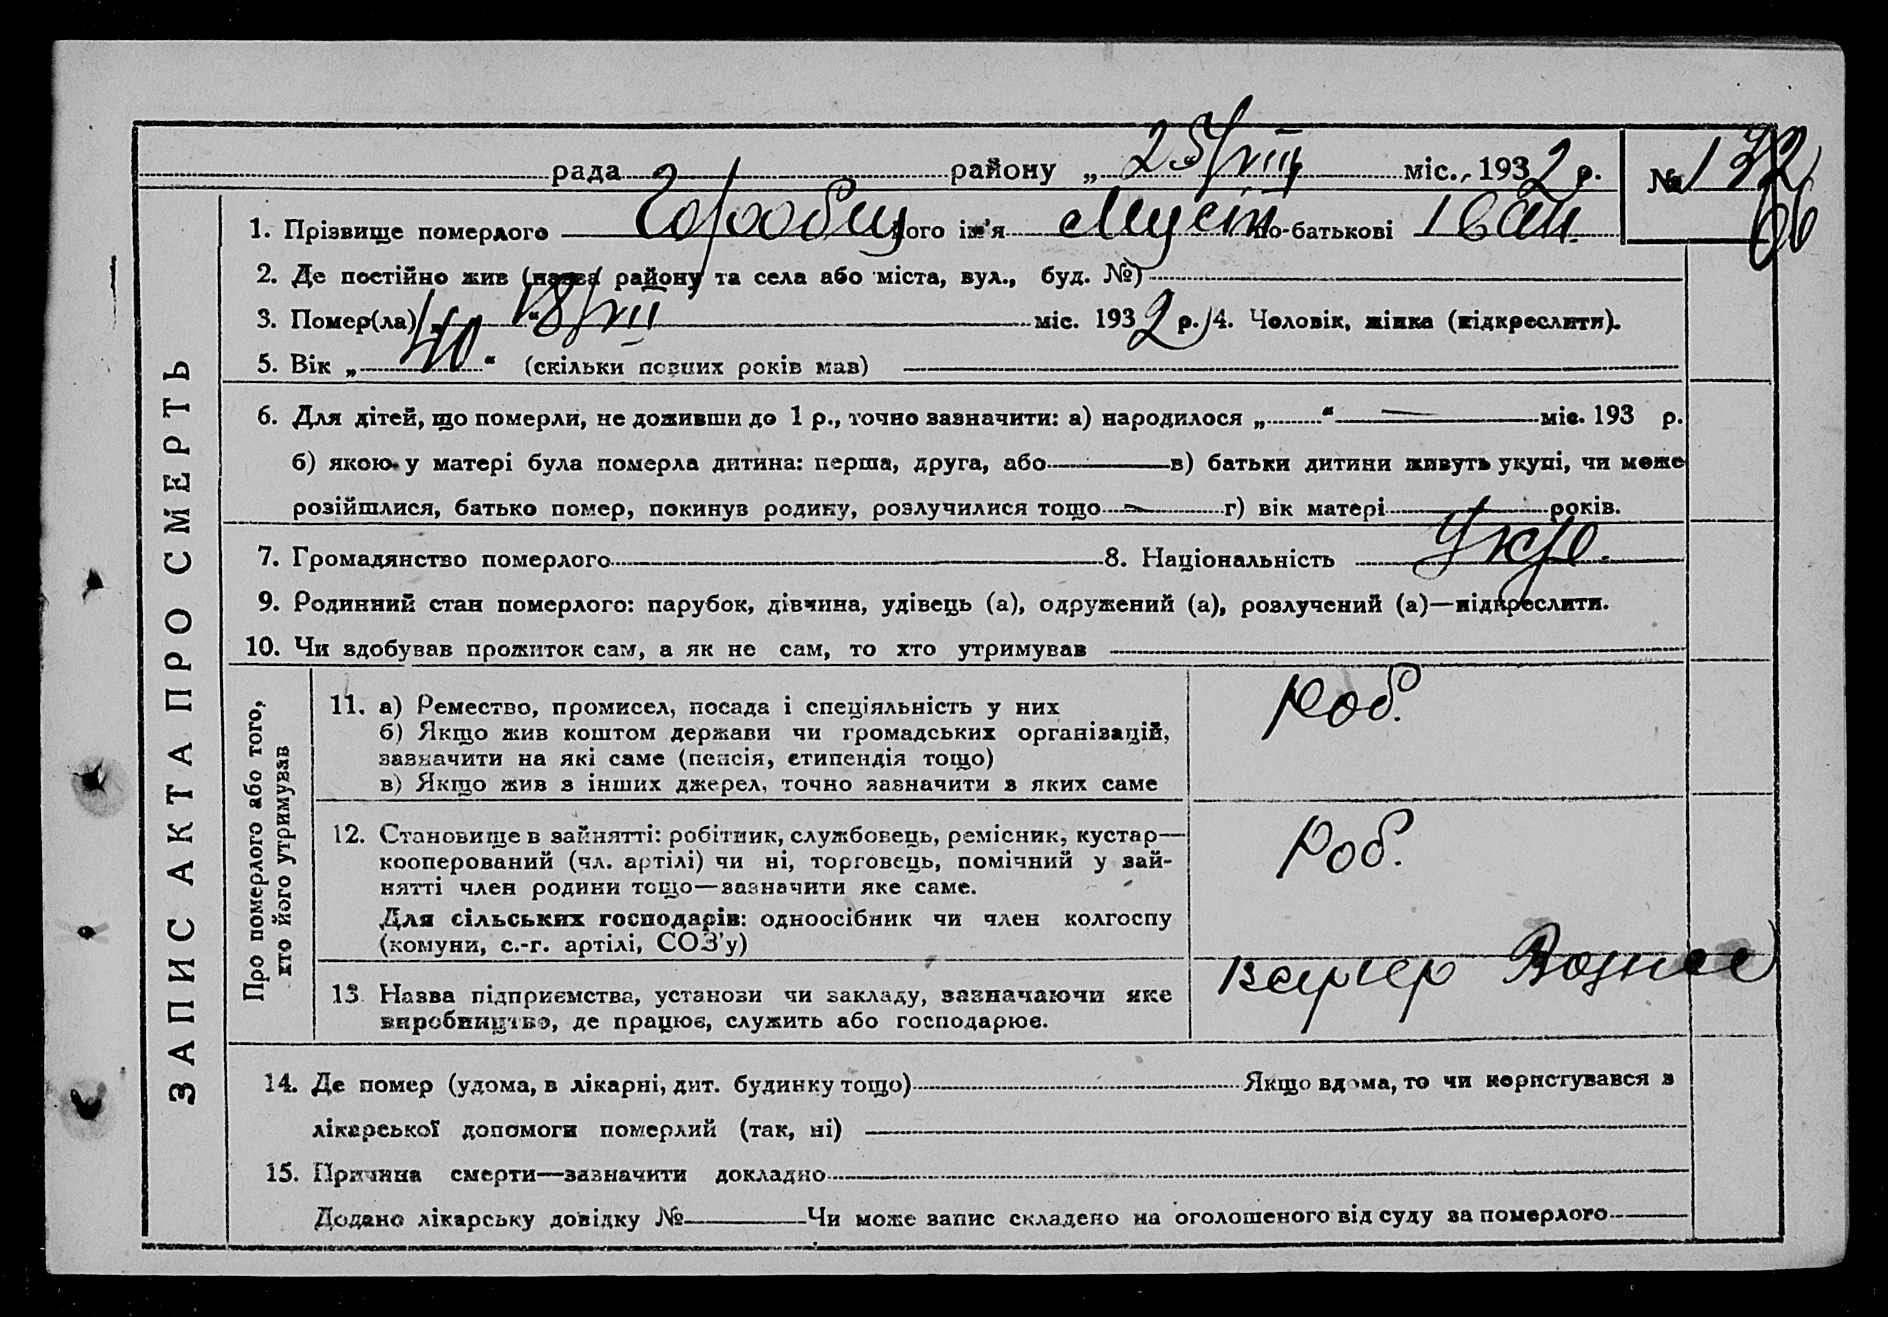 рада района „ 25/VIII міс. 1932 р. № 132
66
1. Прізвище померлого Горобец його ім’я Мусій по-батькові Іван.
2. Де постійно жив (назва району та села або міста, вул., буд. №)
3. Помер(ла) „ 18/VIII “ міс. 1932 р. 4. Чоловік, жінка (підкреслити).
5. Вік „ 40 “ (скільки повних років мав)
6. Для дітей, що померли, не доживши до 1 р., точно зазначити: а) народилося „ “ міс. 193 р.
б) якою у матері була померла дитина: перша, друга, або в) батьки дитини живуть укупі, чи може
розійшлися, батько помер, покинув родину, розлучилися тощо г) вік матері років.
7. Громадянство померлого 8. Національність Укр.
9. Родинний стан померлого: парубок, дівчина, удівець (а), одружений (а), розлучений (а)—підкреслити.
10. Чи здобував прожиток сам, а як не сам, то хто утримував
ЗАПИС АКТА ПРО СМЕРТЬ
Про померлого або того,
хто його утримував
11. а) Ремество, промисел, посада і спеціяльність у них
б) Якщо жив коштом держави чи громадських організацій,
зазначити на які саме (пенсія, стипендія тощо)
в) Якщо жив з інших джерел, точно зазначити з яких саме
роб.
12. Становище в зайнятті: робітник, службовець, ремісник, кустар—
кооперований (чл. артілі) чи ні, торговець, помічний у зай-
нятті член родини тощо—зазначити яке саме.
Для сільських господарів: одноосібник чи член колгоспу
(комуни, с.-г. артілі, СОЗ’у)
роб.
13. Назва підприємства, установи чи закладу, зазначаючи яке
виробництво, де працює, служить або господарює.
карєр
14. Де помер (удома, в лікарні, дит. будинку тощо) Якщо вдома, то чи користувався з
лікарської допомоги померлий (так, ні)
15. Причина смерти—зазначити докладно
Додано лікарську довідку № Чи може запис складено на оголошеного від суду за померлого